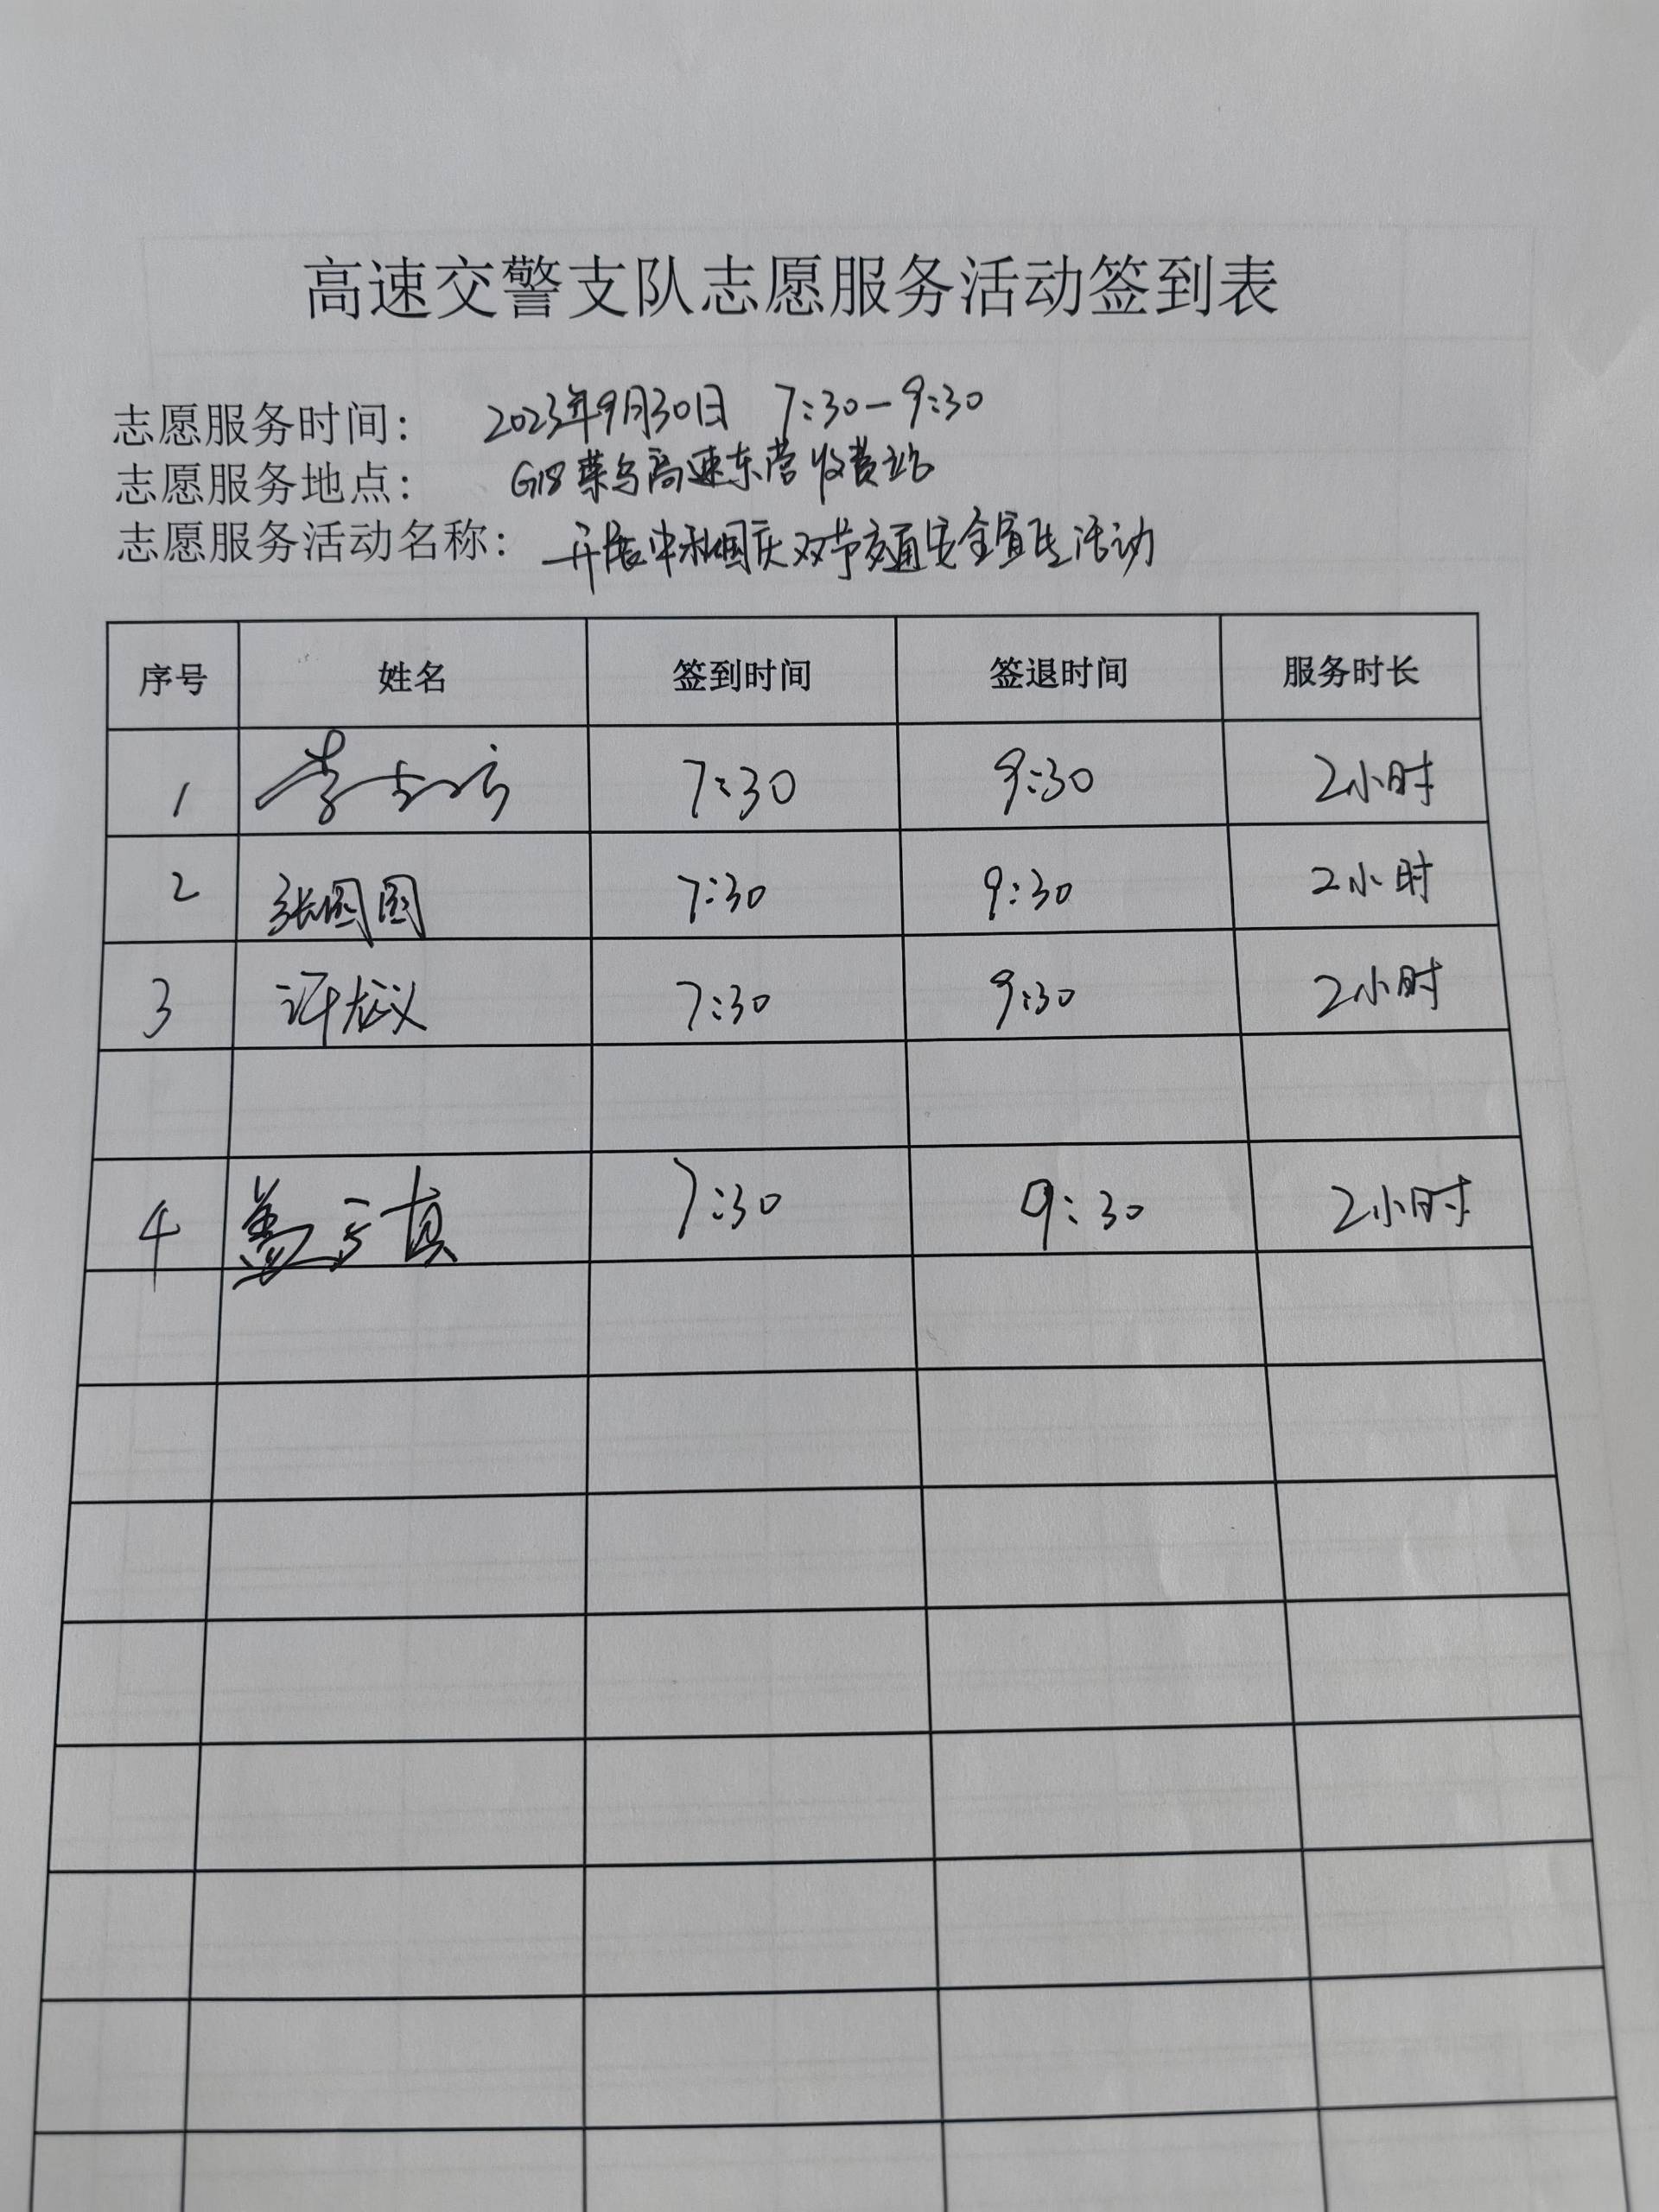 高速交警支队志愿服务活动签到表
志愿服务时间： 2023年9月30日 7:30-9:30
志愿服务地点： G18荣乌高速东营收费站
志愿服务活动名称： 开展中秋国庆双节交通安全宣传活动
序号 姓名 签到时间 签退时间 服务时长
1 李 7:30 9:30 2小时
2 张圆圆 7:30 9:30 2小时
3 许 7:30 9:30 2小时
4 7:30 9:30 2小时